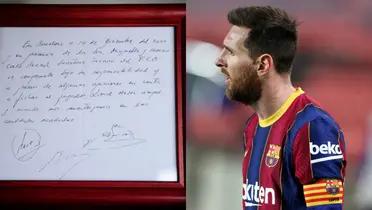 En Barcelona, a 14 de Diciembre del 2000
y en presencia de los Srs Minguella y Horacio
Carles Rexach Secretario técnico del F.C.B
se compromete bajo su responsabilidad y
a pesar de algunas opiniones en contra
a fichar al jugador Lionel Messi siempre
y cuando nos mantengamos en las
cantidades acordadas
beko
akuten